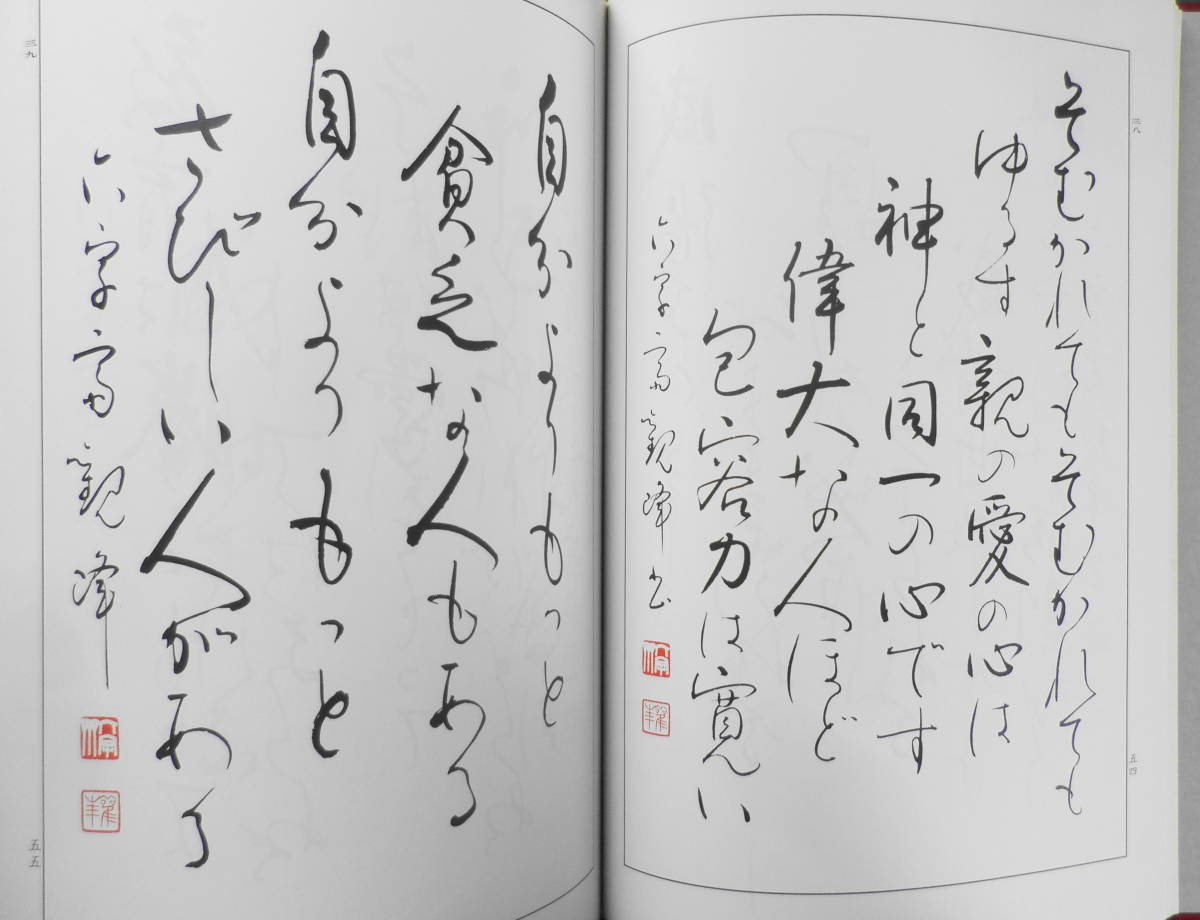 三八
そむかれてもそむかれても
ゆるす親の愛の心は
神と同一の心です
偉大な人ほど
包容力は寛い
觀峰書
五四
自分よりもっと
貧乏な人もある
自分よりもっと
さびしい人がある
觀峰
三九
五五